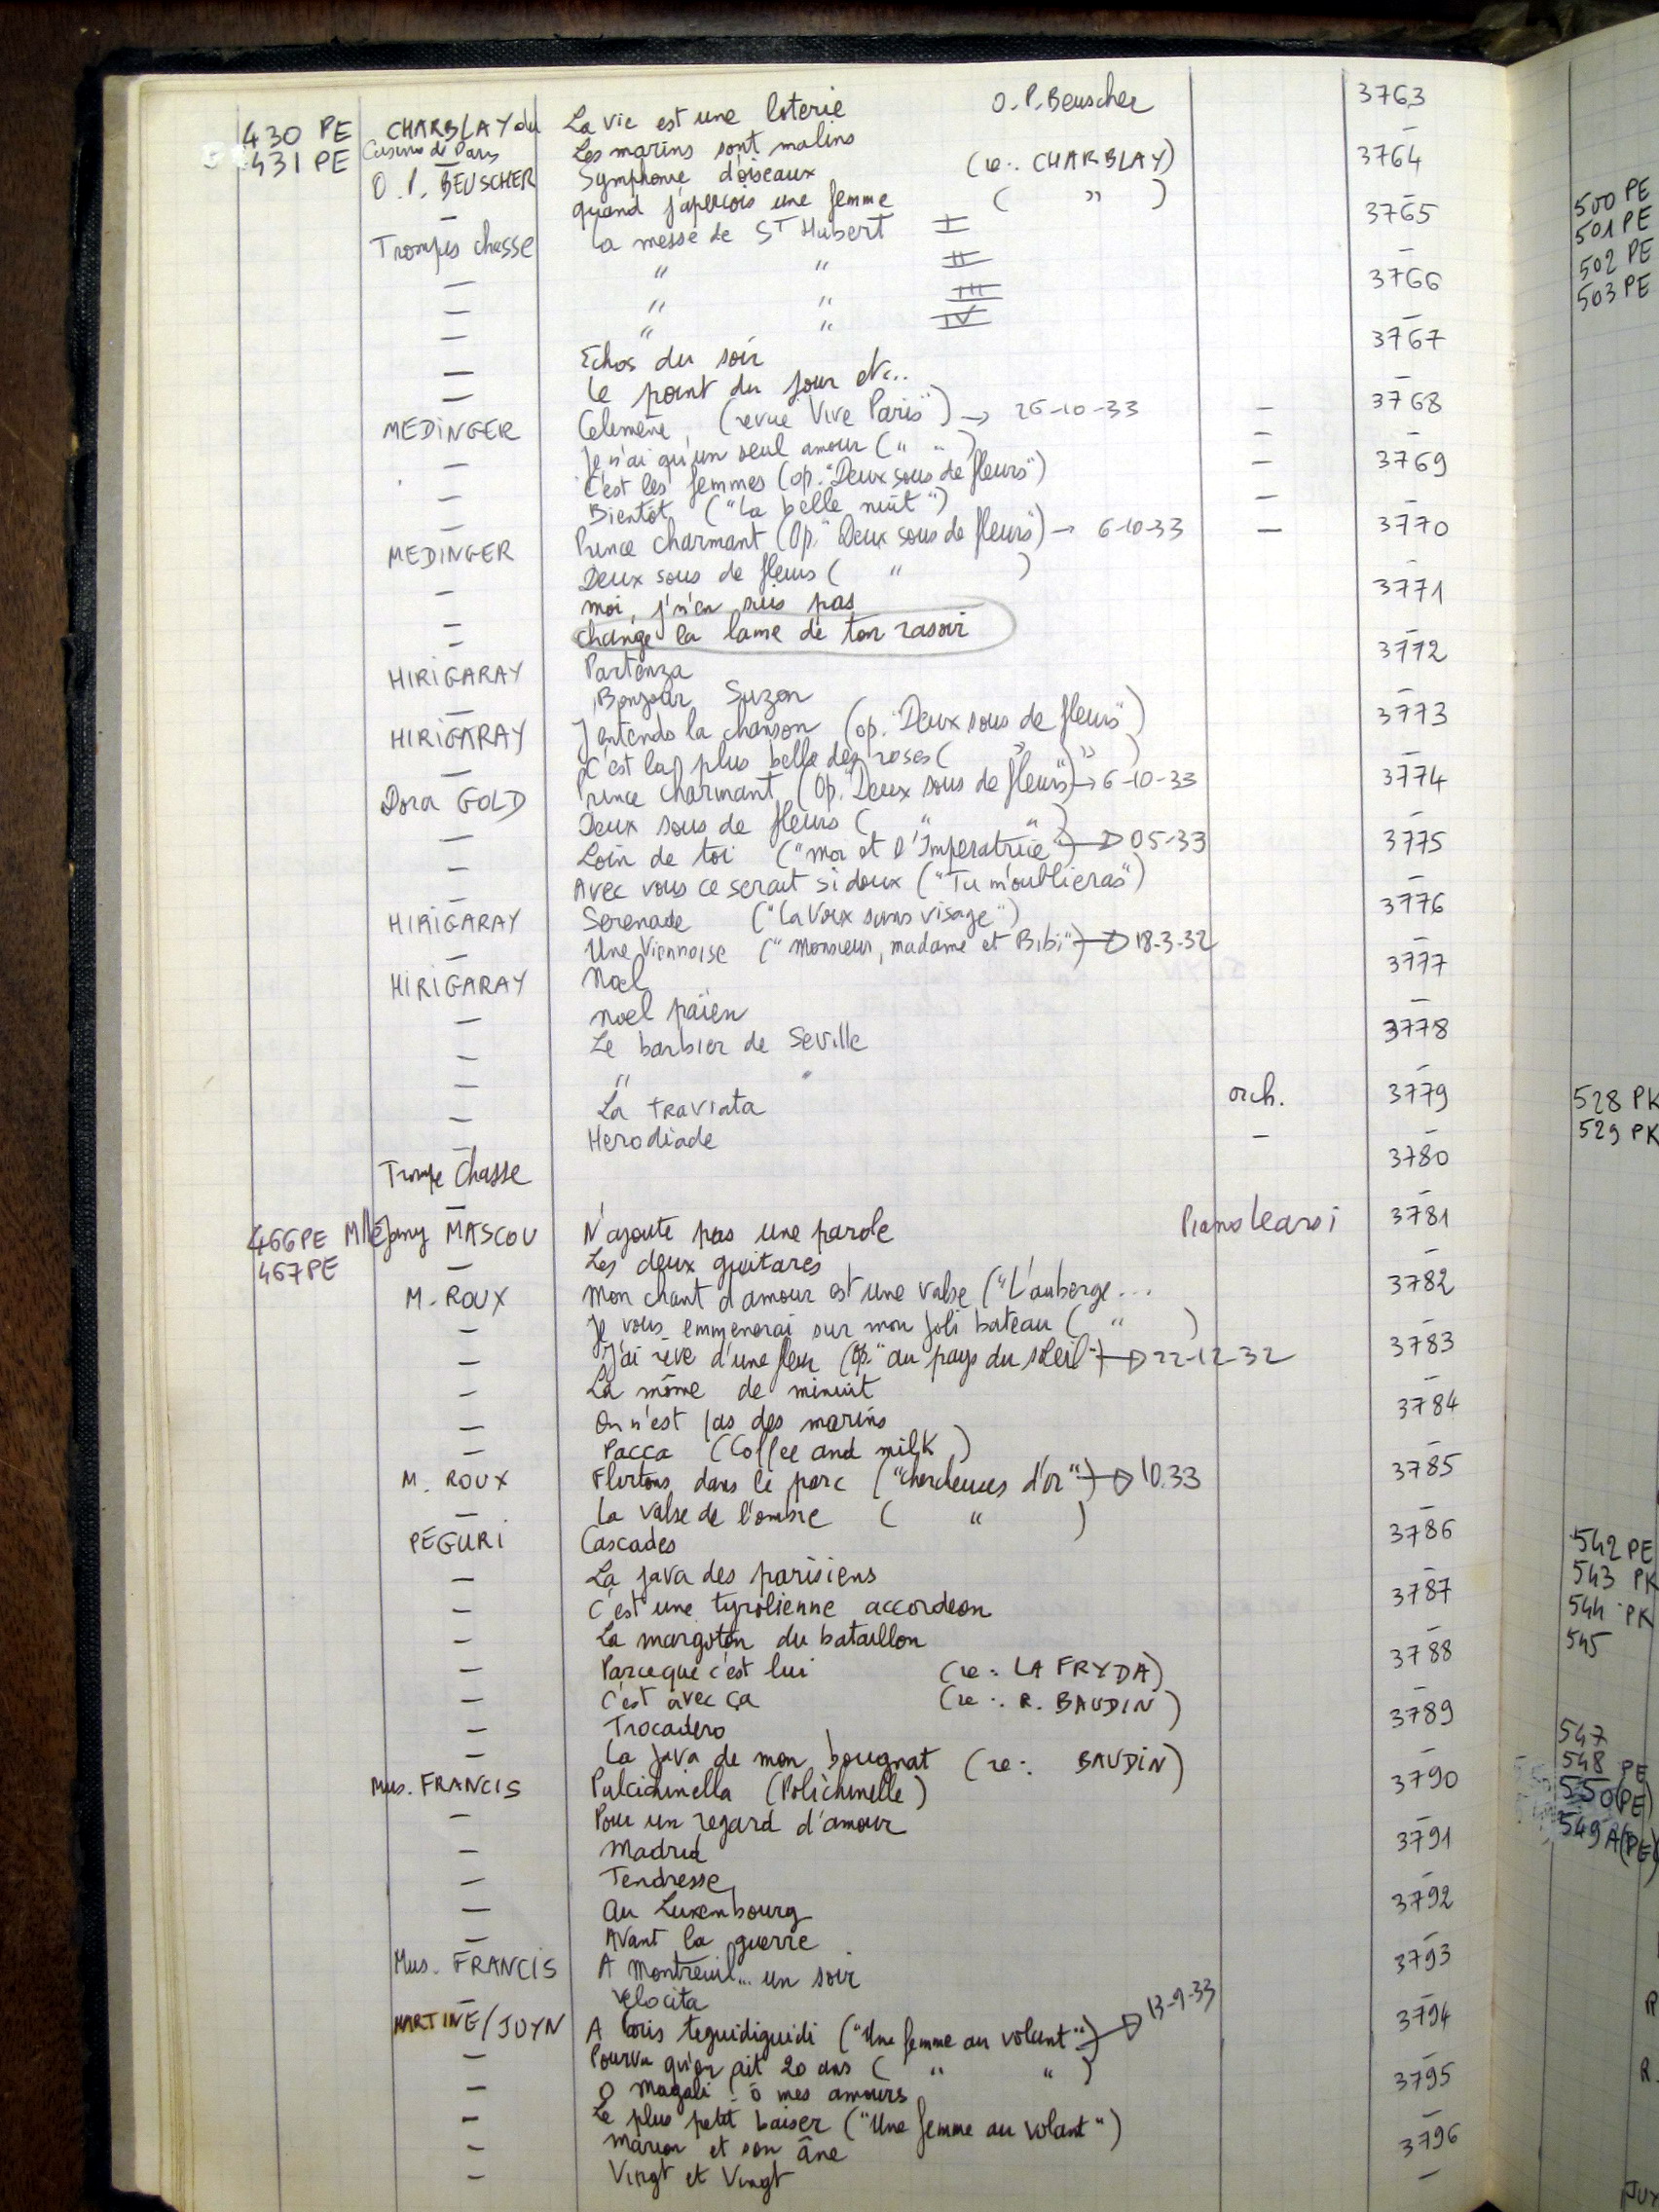 430 PE CHARBLAY du La vie est une loterie O.P. Beuscher 3763
431 PE Casino de Paris Les marins sont malins —
O.P. BEUSCHER Symphonie d'oiseaux (re: CHARBLAY) 3764
— quand j'aperçois une femme ( " ) —
Trompes chasse La messe de St Hubert I 3765
— " " II —
— " " III 3766
— " " IV —
— Echos du soir 3767
— Le point du jour etc.. —
MEDINGER Celimène (revue "Vive Paris") → 26-10-33 — 3768
— Je n'ai qu'un seul amour ( " " ) — —
— C'est les femmes (op. "Deux sous de fleurs") — 3769
— Bientôt ("La belle nuit") — —
MEDINGER Prince charmant (Op. "Deux sous de fleurs") → 6-10-33 — 3770
— Deux sous de fleurs ( " ) —
— moi, j'n'en suis pas 3771
— change la lame de ton rasoir —
HIRIGARAY Partenza 3772
— Bonjour Suzon —
HIRIGARAY J'entends la chanson (op. "Deux sous de fleurs") 3773
— C'est la plus belle des roses ( " " ) —
Dora GOLD Prince charmant (Op. "Deux sous de fleurs") → 6-10-33 3774
— Deux sous de fleurs ( " " ) —
— Loin de toi ("Moi et l'Imperatrice") → 05-33 3775
— Avec vous ce serait si doux ("Tu m'oublieras") —
HIRIGARAY Serenade ("La Voix sans visage") 3776
— Une Viennoise ("Monsieur, madame et Bibi") → 18-3-32 —
HIRIGARAY Noel 3777
— Noel païen —
— Le barbier de Seville 3778
— " " —
— La Traviata orch. 3779
— Herodiade — —
Trompe Chasse 3780
— —
466 PE Mlle Jany MASCOU N'ajoute pas une parole Piano Learsi 3781
467 PE — Les deux guitares —
M. ROUX Mon chant d'amour est une valse ("L'auberge... 3782
— Je vous emmenerai sur mon joli bateau ( " ) —
— J'ai rêvé d'une fleur (op. "au pays du soleil") → 22-12-32 3783
— La môme de minuit —
— On n'est pas des marins 3784
— Pacça (Coffee and milk) —
M. ROUX Flirtons dans le parc ("chercheuses d'or") → 10.33 3785
— La valse de l'ombre ( " ) —
PEGURI Cascades 3786
— La java des parisiens —
— C'est une tyrolienne accordeon 3787
— La margoton du bataillon —
— Parceque c'est lui (re: LA FRYDA) 3788
— C'est avec ça (re: R. BAUDIN) —
— Trocadero 3789
— La java de mon bougnat (re: BAUDIN) —
Mus. FRANCIS Pulcichinella (Polichinelle) 3790
— Pour un regard d'amour —
— Madrid 3791
— Tendresse —
— Au Luxembourg 3792
— Avant la guerre —
Mus. FRANCIS A Montreuil... un soir 3793
— Velocita —
MARTINE/JUYN A Paris teguidiguidi ("Une femme au volant") → 13-9-33 3794
— Pourvu qu'on ait 20 ans ( " " ) —
— O Magali ! ô mes amours 3795
— Le plus petit baiser ("Une femme au volant") —
— Marion et son âne 3796
— Vingt et Vingt —
500 PE
501 PE
502 PE
503 PE
528 PK
529 PK
542 PE
543 PK
544 PK
545
547
548 PE
550 (PE)
549 A (PE)
R.